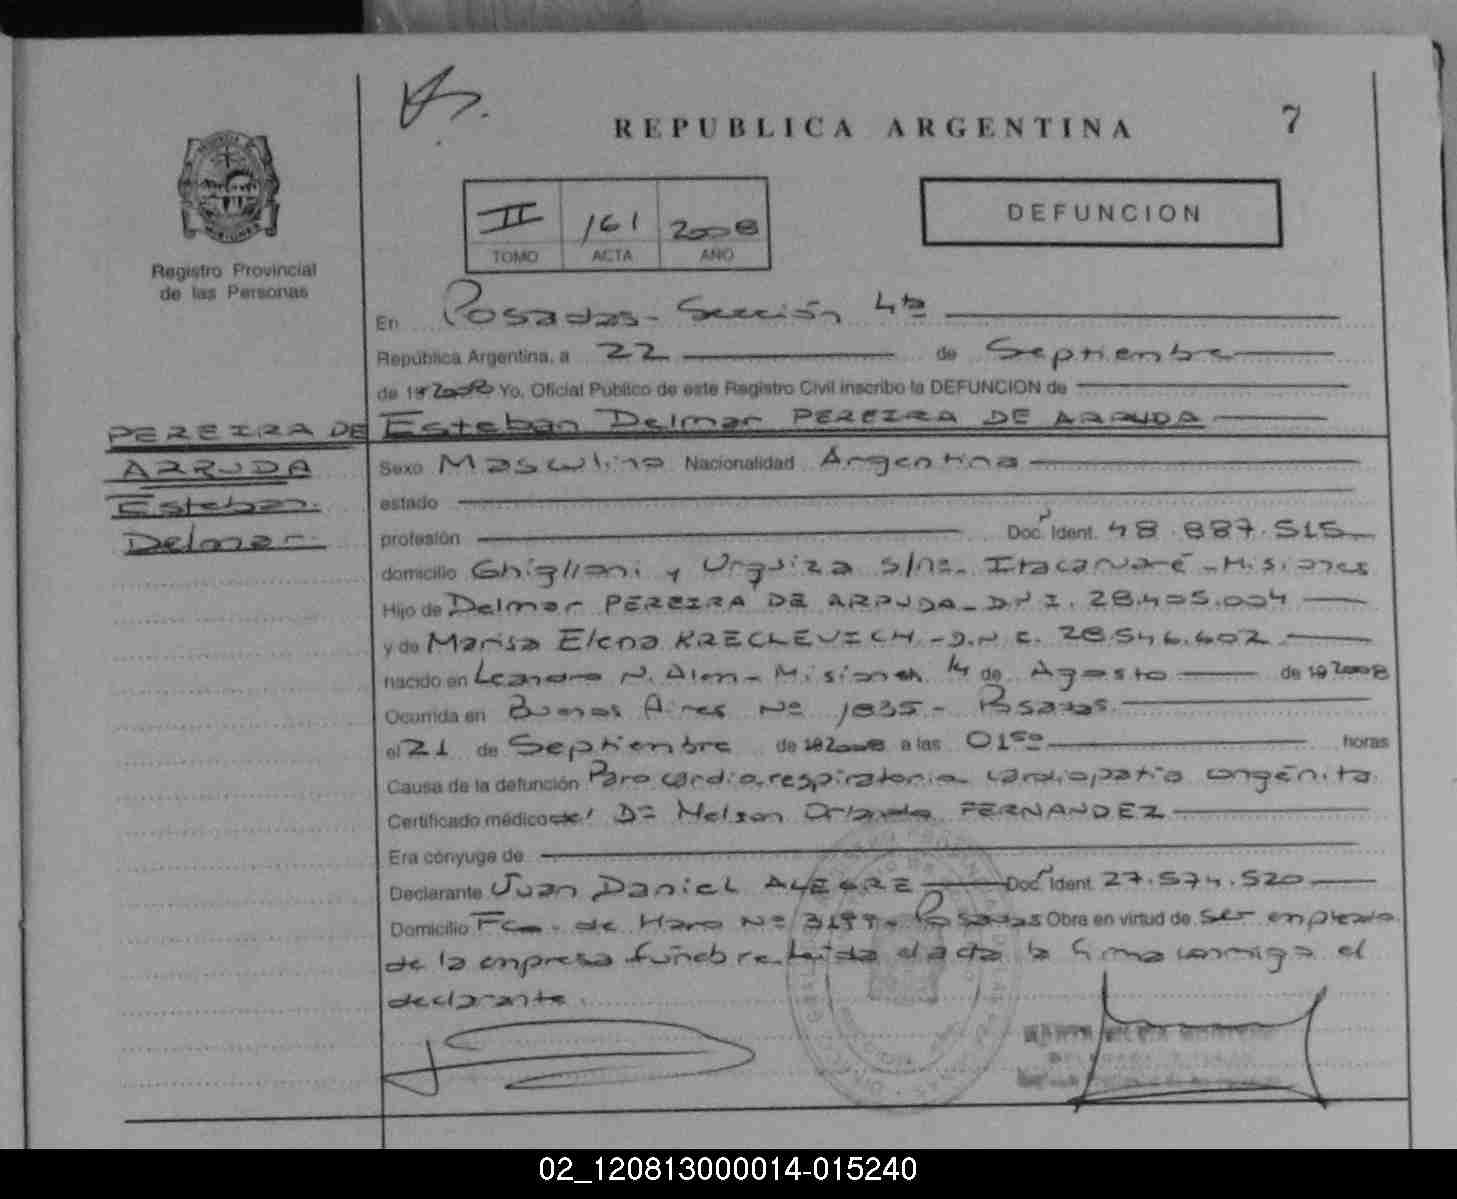 REPUBLICA ARGENTINA
7
II 161 2008
TOMO ACTA AÑO
DEFUNCION
Registro Provincial
de las Personas
En Posadas - Sección 4ta
República Argentina, a 22 de Septiembre
de 19 2008 Yo, Oficial Público de este Registro Civil inscribo la DEFUNCION de
PEREIRA DE
ARRUDA
Esteban
Delmar
Esteban Delmar PEREIRA DE ARRUDA
Sexo Masculino Nacionalidad Argentina
estado
profesión Doc. Ident. 48.887.515
domicilio Ghiglioni y Urquiza s/nº - Itacaruaré - Misiones
Hijo de Delmar PEREIRA DE ARRUDA - DNI. 28.405.004
y de Marisa Elena KRECLEVICH - D.N.I. 28.546.602
nacido en Leandro N. Alem - Misiones 14 de Agosto de 19 2008
Ocurrida en Buenos Aires Nº 1835 - Posadas
el 21 de Septiembre de 19 2008 a las 01:50 horas
Causa de la defunción Paro cardiorespiratorio cardiopatia congénita
Certificado médico del Dr Nelson Orlando FERNANDEZ
Era cónyuge de
Declarante Juan Daniel ALEGRE Doc. Ident. 27.574.520
Domicilio Fco. de Haro Nº 3199 - Posadas Obra en virtud de ser empleado
de la empresa fúnebre. Leída el acta la firma conmigo el
declarante.
02_120813000014-015240